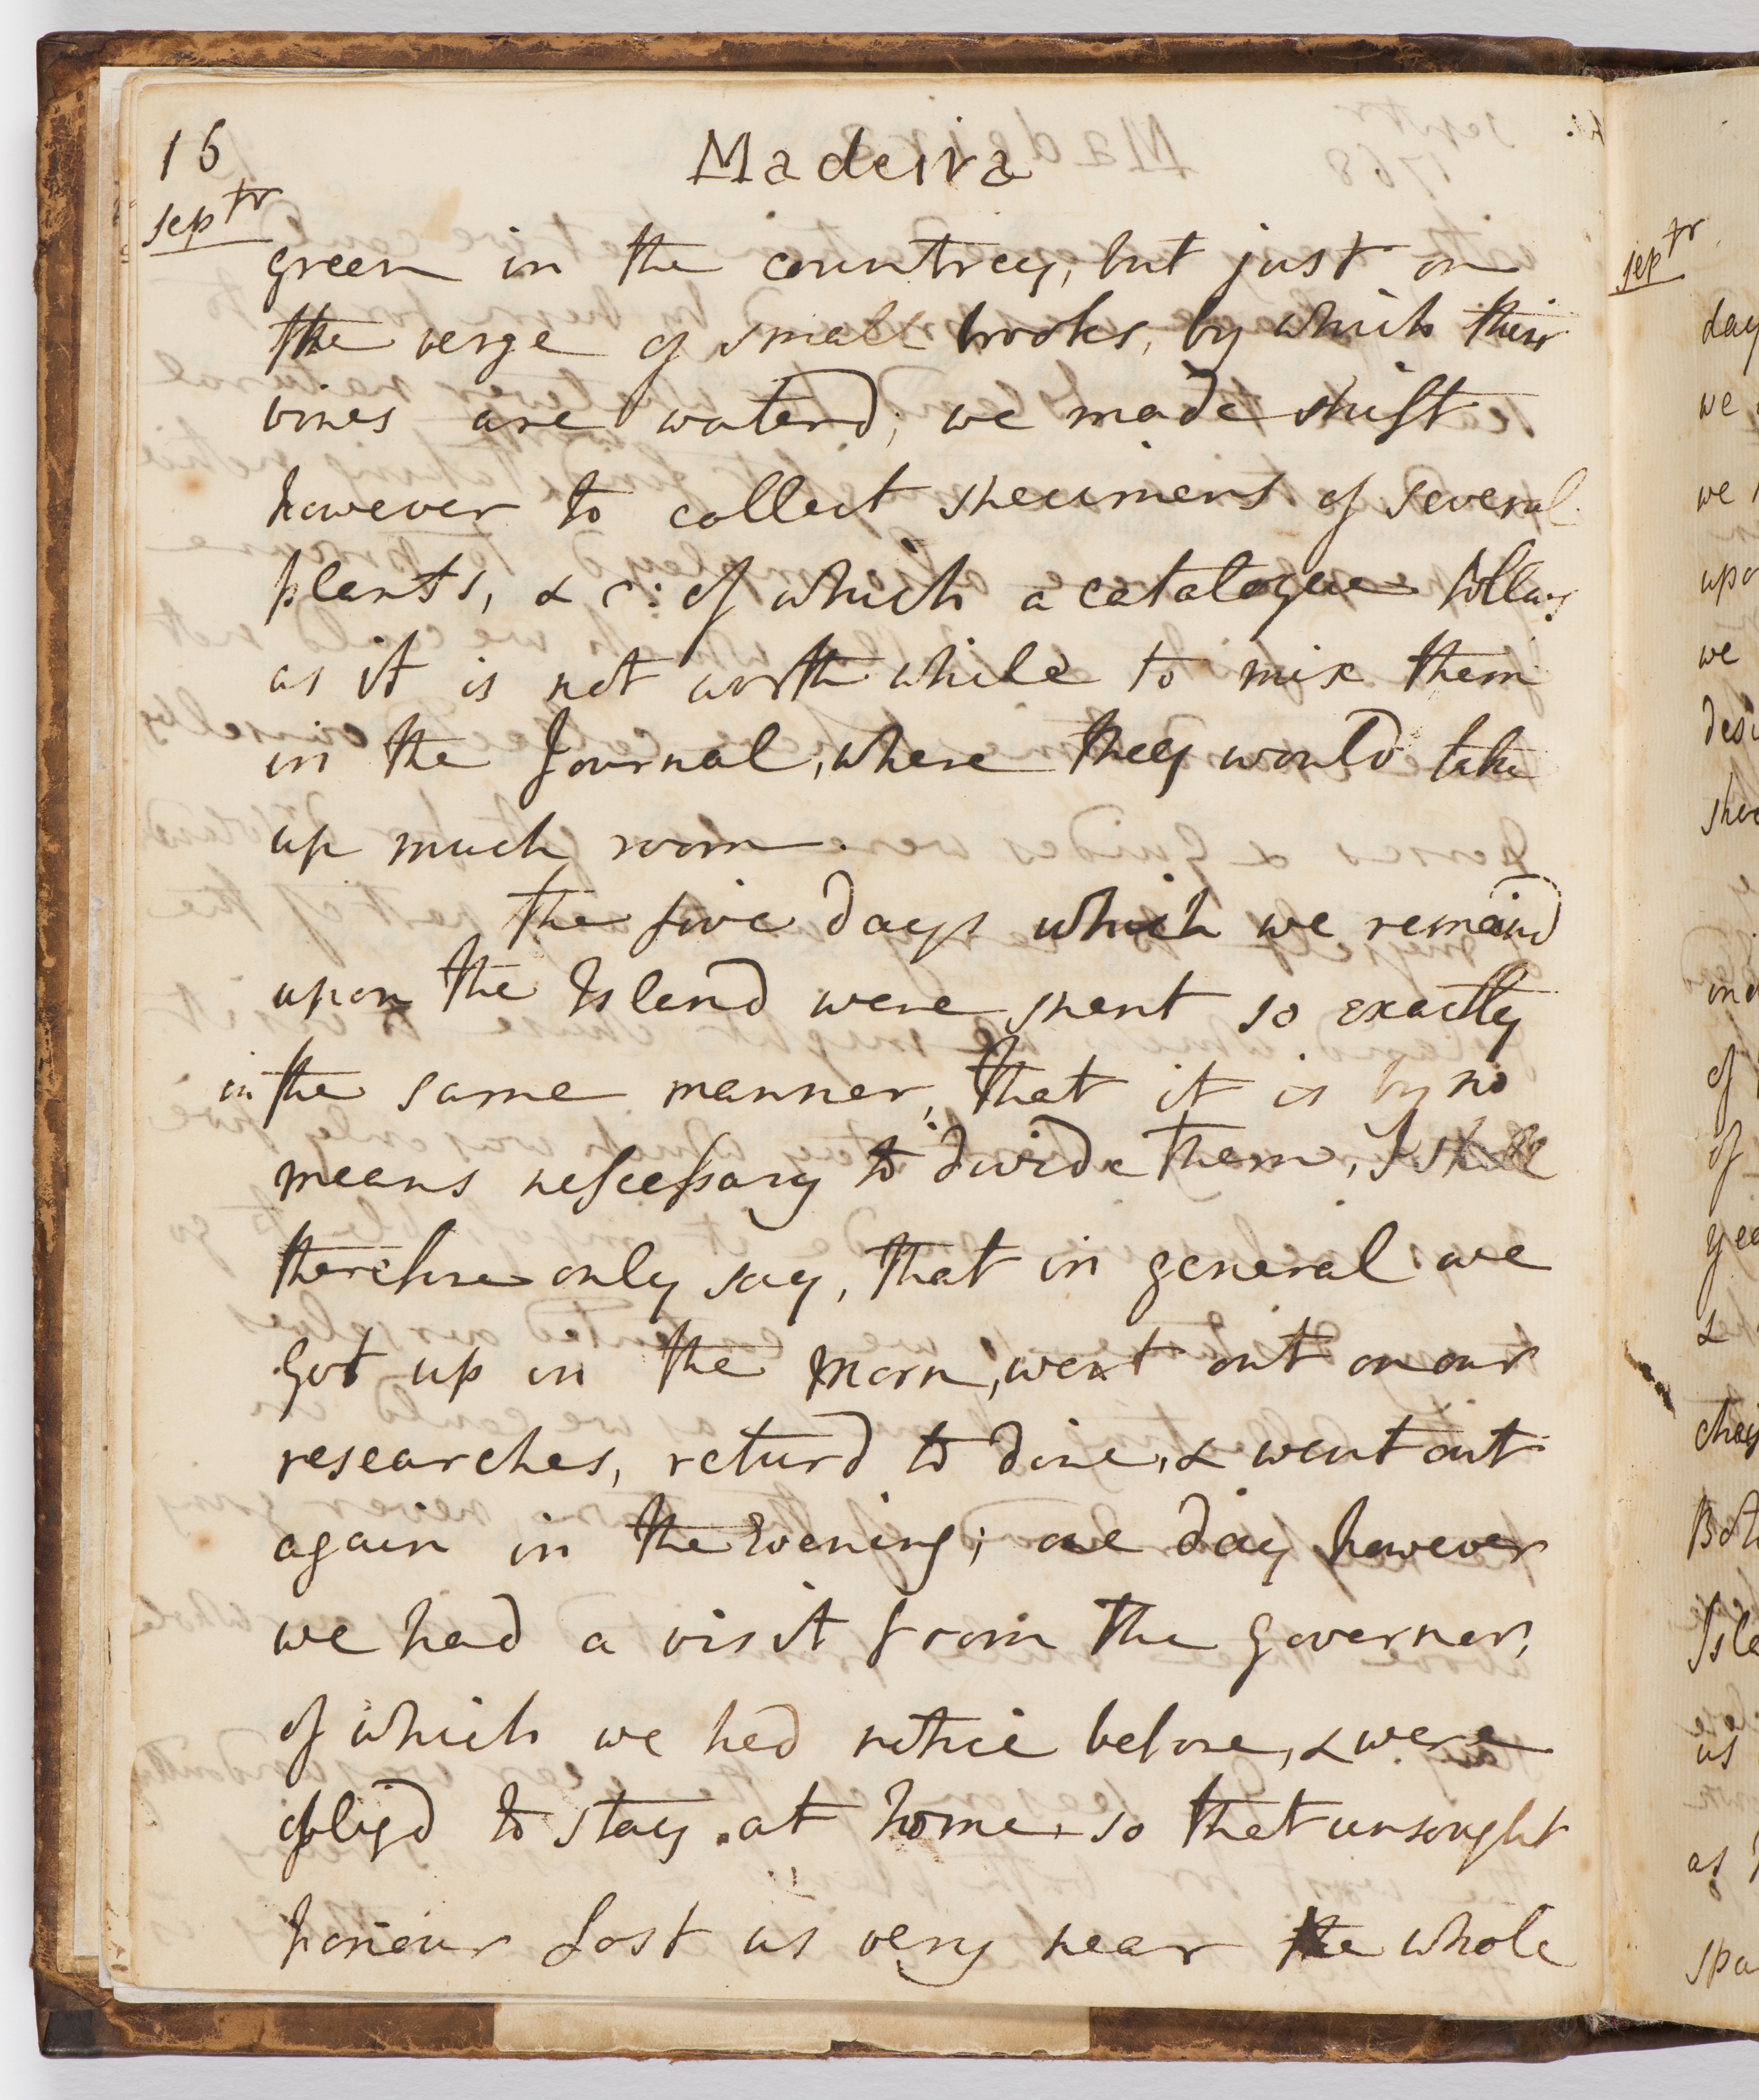 16
Madeira
septr
green in the countrey, but just on
the verge of small brooks, by which their
vines are waterd; we made shift
however to collect specimens of several
plants, & c: of which a catalogue follows
as it is not worth while to mix them
in the Journal, where they would take
up much room.
the five days which we remaind
upon the Island were spent so exactly
in the same manner, that it is by no
means nescessary to divide them, I shall
therefore only say, that in general we
got up in the morn, went out on our
researches, returd to dine, & went out
again in the Evening; one day however
we had a visit from the Governor,
of which we had notice before, & were
obligd to stay at home, so that unsought
honour lost us very near the whole
septr
day
we
we
upo
we
of
of
as